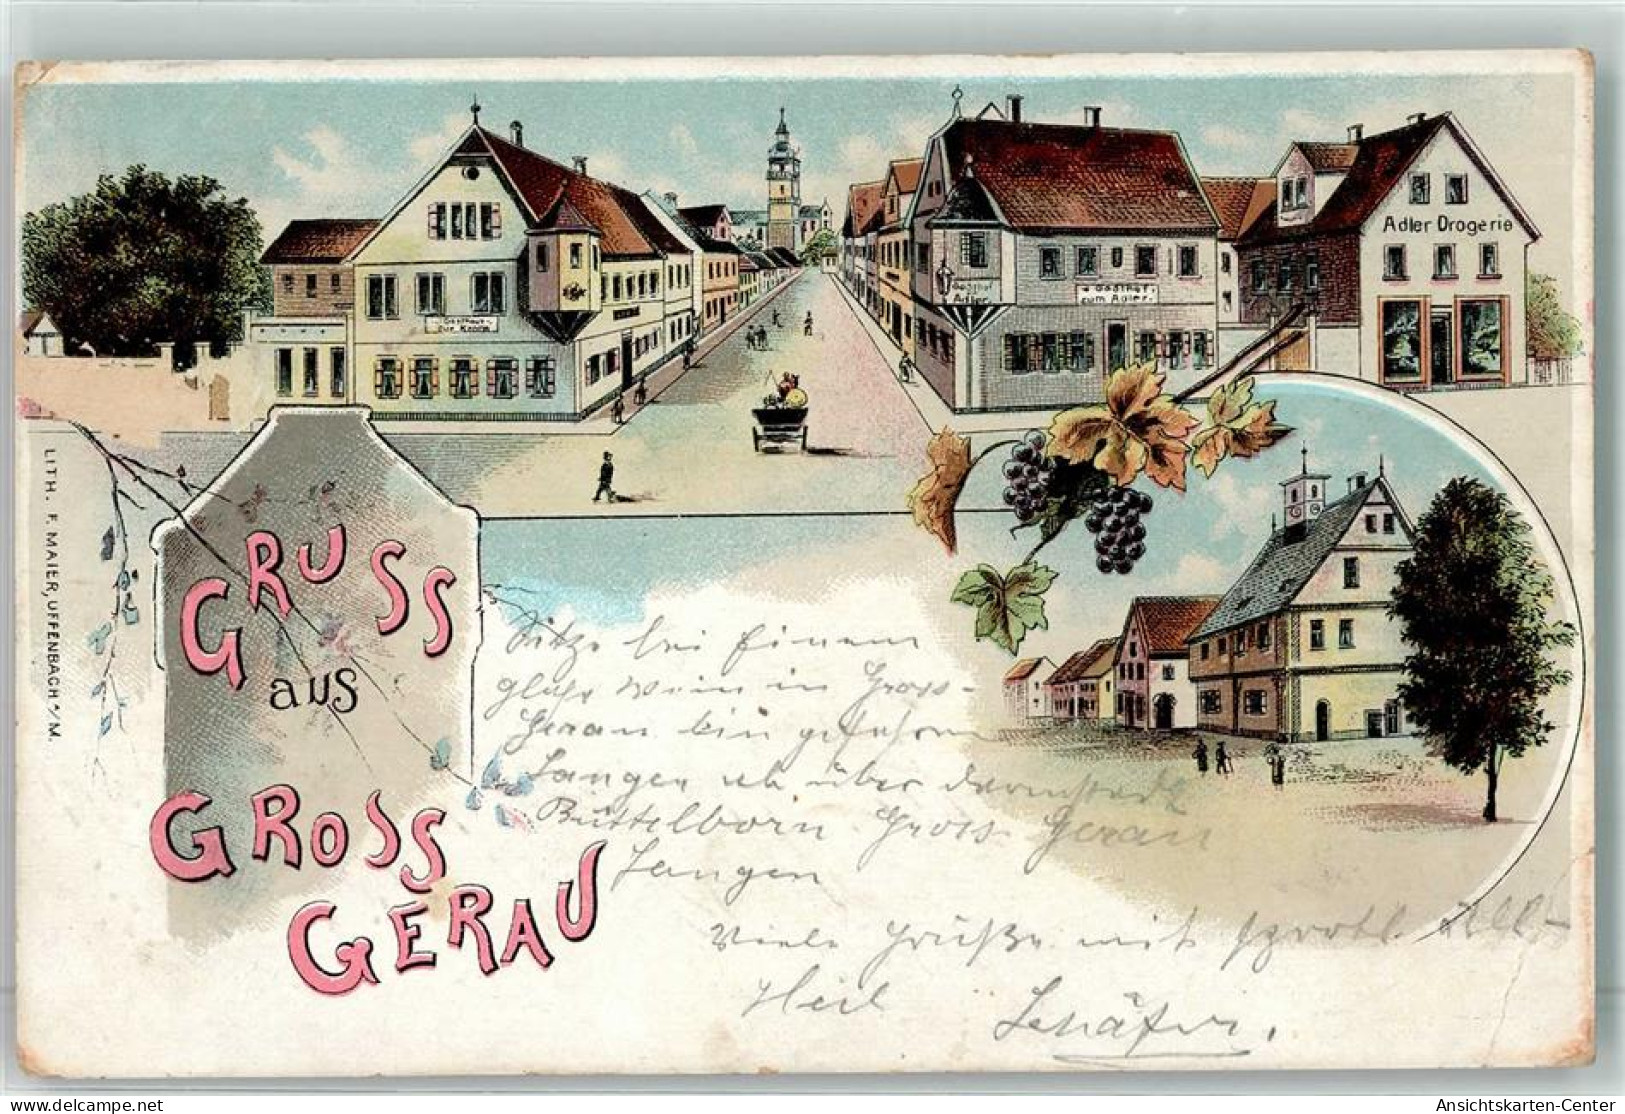 Adler Drogerie
Gasthof
z.
Adler.
Gasthof z.
zum Adler.
Gasthaus
zur Krone
LITH. F. MAIER, OFFENBACH a/M.
GRUSS
aus
GROSS
GERAU
Sitze bei Einem
glase Wein in Gross-
Gerau bin gefahren
Langen ab über Darmstadt
Büttelborn Gross Gerau
Langen
Viele Grüße mit Sportl. All-
Heil Schäfer.
www.delcampe.net / tpk_de
Ansichtskarten-Center